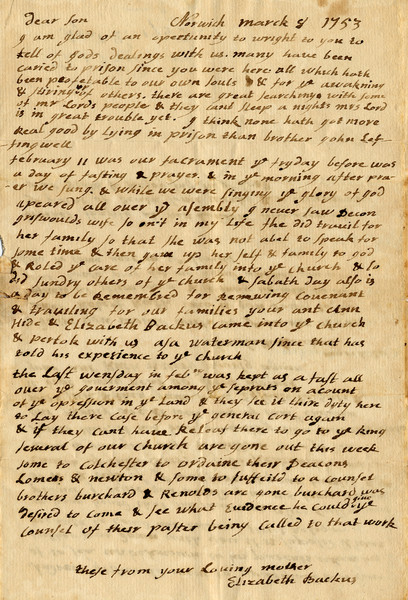 dear son Norwich march 8 1753
I am glad of an opertunity to wright to you to
tell of gods dealings with us. many have been
caried to prison since you were here: all which hath
been profetable to our own souls & for ye awakening
& stiring up of others. there are great searchings with some
of mr Lords people & they cant sleep a nights mrs Lord
is in great trouble yet. I think none hath got more
real good by lying in prison than brother john Lef
fingwell
february 11 was our sacrament ye fryday before was
a day of fasting & prayer. & in ye morning after pra
er we sung. & while we were singing ye glory of god
apeared all over ye asembly I never saw Decon
griswoulds wife so on't in my life the did travil for
her family so that she was not abel to speak for
some time & then gave up her self & family to god
& Roled ye care of her family into ye church & so
did sundry others of ye church & sabath day also is
a day to be Remembred for Renewing Covenant
& traviling for our families your ant Ann
Hide & Elizabeth Backus came into ye church
& pertok with us asa waterman since that has
told his experience to ye church
the Last wensday in febry was kept as a fast all
over ye goverment among ye seprats on acount
of ye opression in ye Land & they see it thire duty here
to Lay there case before ye general Cort again
& if they cant have Releaf there to go to ye king
several of our Church are gone out this week
some to Colchester to ordaine their Deacons
Lomess & newton & some to suffeild to a counsel
brothers burchard & Renolds are gone burchard was
desired to come & see what Evidence he could give ye
counsel of there paster being called to that work
these from your Loving mother
Elizabeth Backus